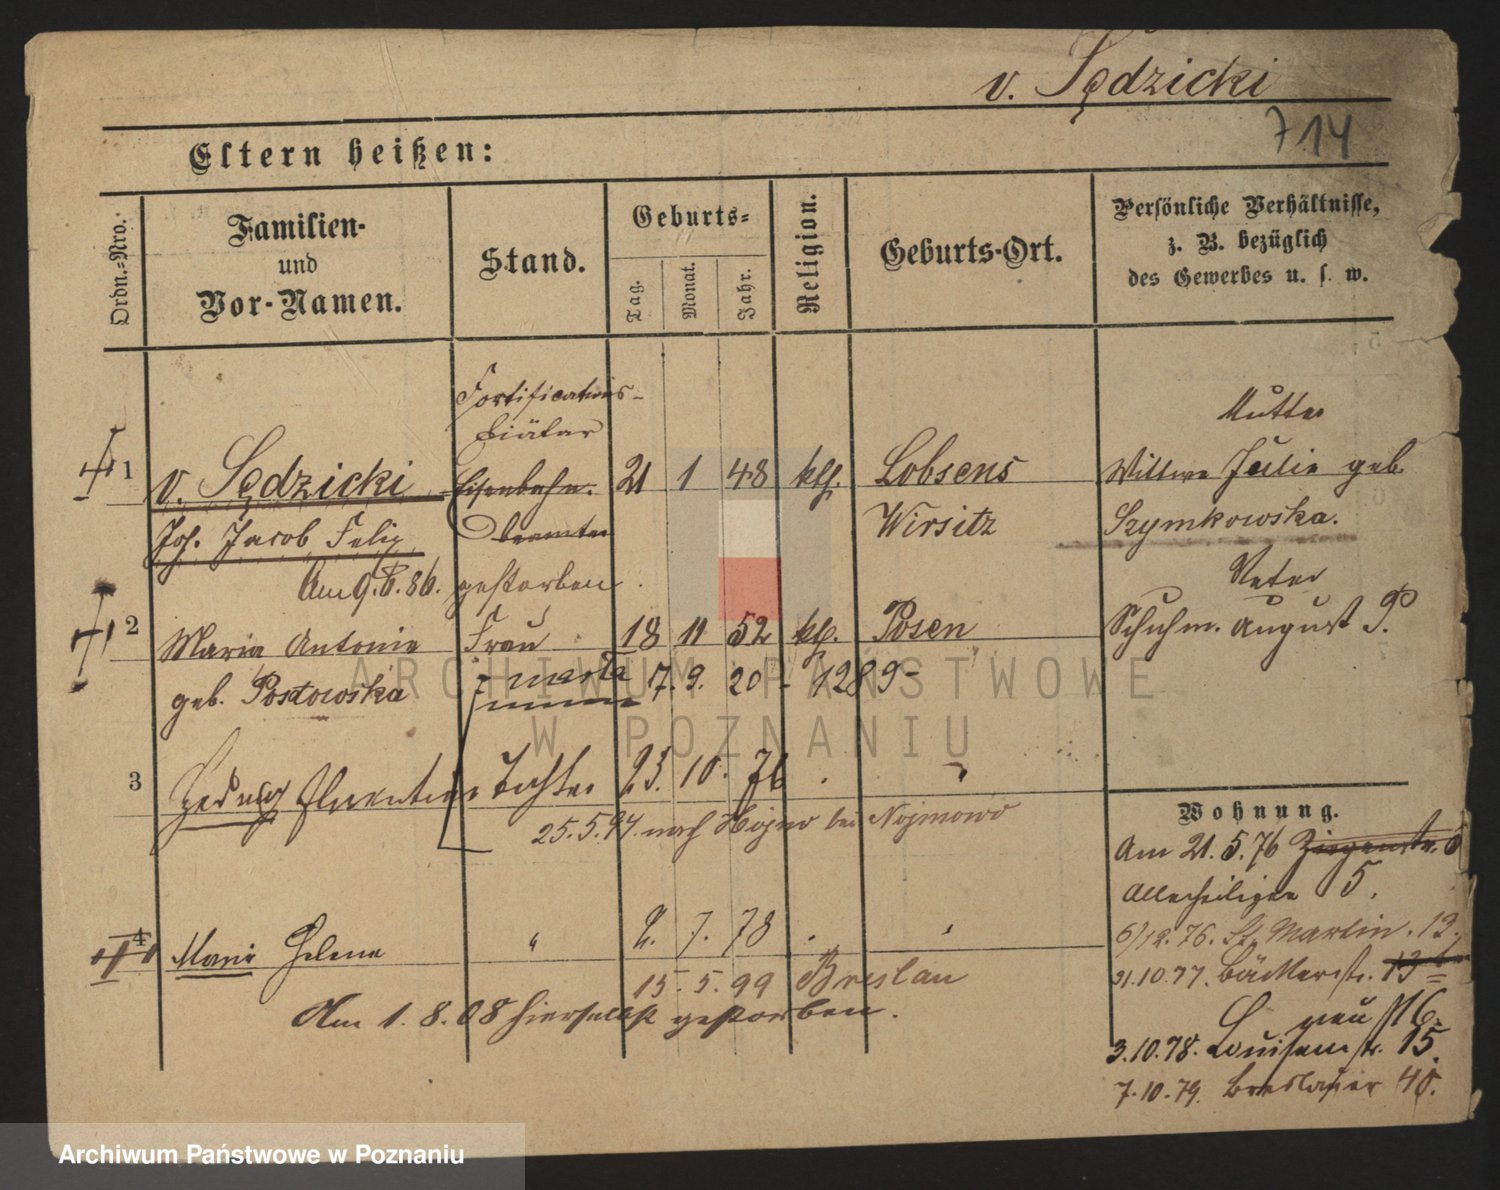 v. Sędzicki
714
Eltern heißen:
Ordn.-Nro.
Familien-
und
Vor-Namen.
Stand.
Geburts-
Tag.
Monat.
Jahr.
Religion.
Geburts-Ort.
Persönliche Verhältnisse,
z. B. bezüglich
des Gewerbes u. s. w.
Fortifications-
Diätar
1 v. Sędzicki Eisenbahn- 21 1 48 kth. Lobsens
Joh. Jacob Felix beamter Wirsitz
Am 9.6.86. gestorben.
Mutter
Wittwe Julie geb
Szymkowska.
Vater
Schuhm. August P.
2 Maria Antonie Frau 18 11 52 kth. Posen
geb. Postowska zmarła 7. 9. 20 - 1289-
3 Hedwig Florentine Tochter 23. 10. 76 "
25.5.94. nach Hojno bei Nojmowo
4 Marie Helene " 2. 7. 78
15. 5. 99 Breslau
Am 1. 8. 08 hierselbst gestorben.
Wohnung.
Am 21.5.76 Ziegenstr. 6
Allerheiligen 5.
6/12.76. St. Martin. 13.
31.10.77. Bäckerstr. 13
neu 16.
3.10.78. Louisenstr. 15.
7.10.79. Breslauer 40.
ARCHIWUM PAŃSTWOWE
W POZNANIU
Archiwum Państwowe w Poznaniu